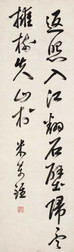 返照入江翻石壁歸雲
擁樹失山村
米萬鍾